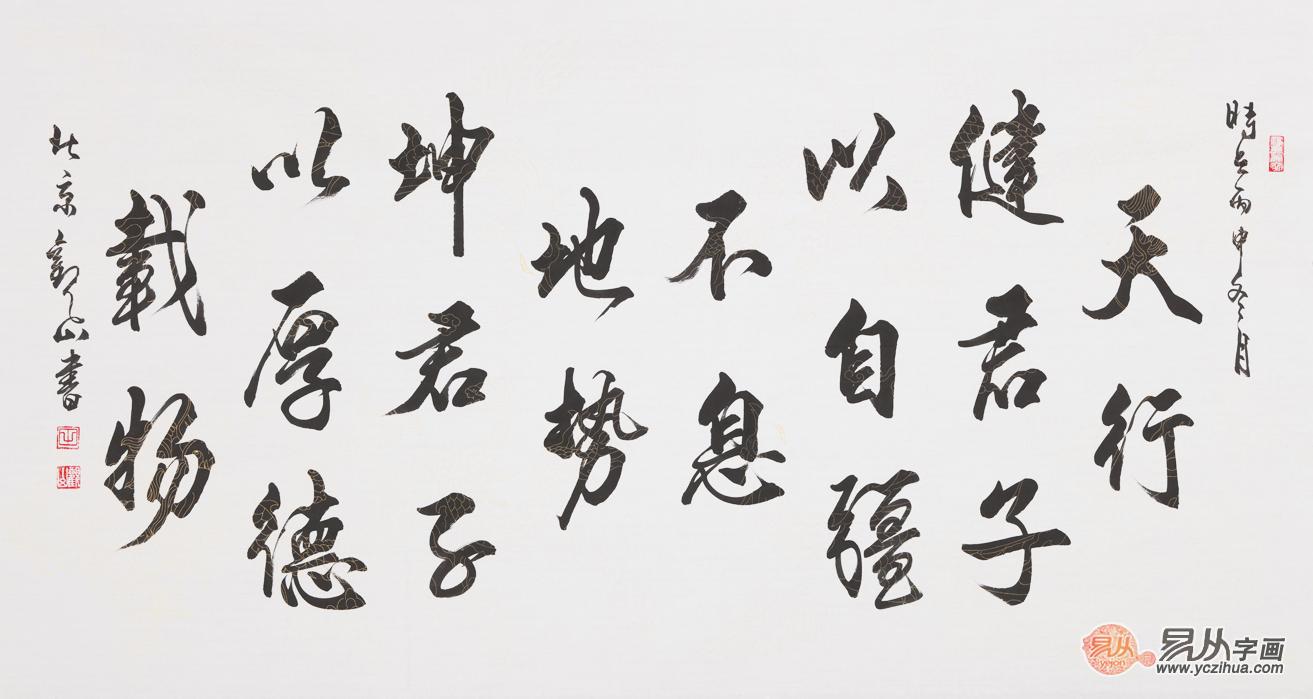 時在丙申冬月
天行
健君子
以自疆
不息
地势
坤君子
以厚德
載物
北京觀山書
易从
yejon
易从字画
www.yczihua.com